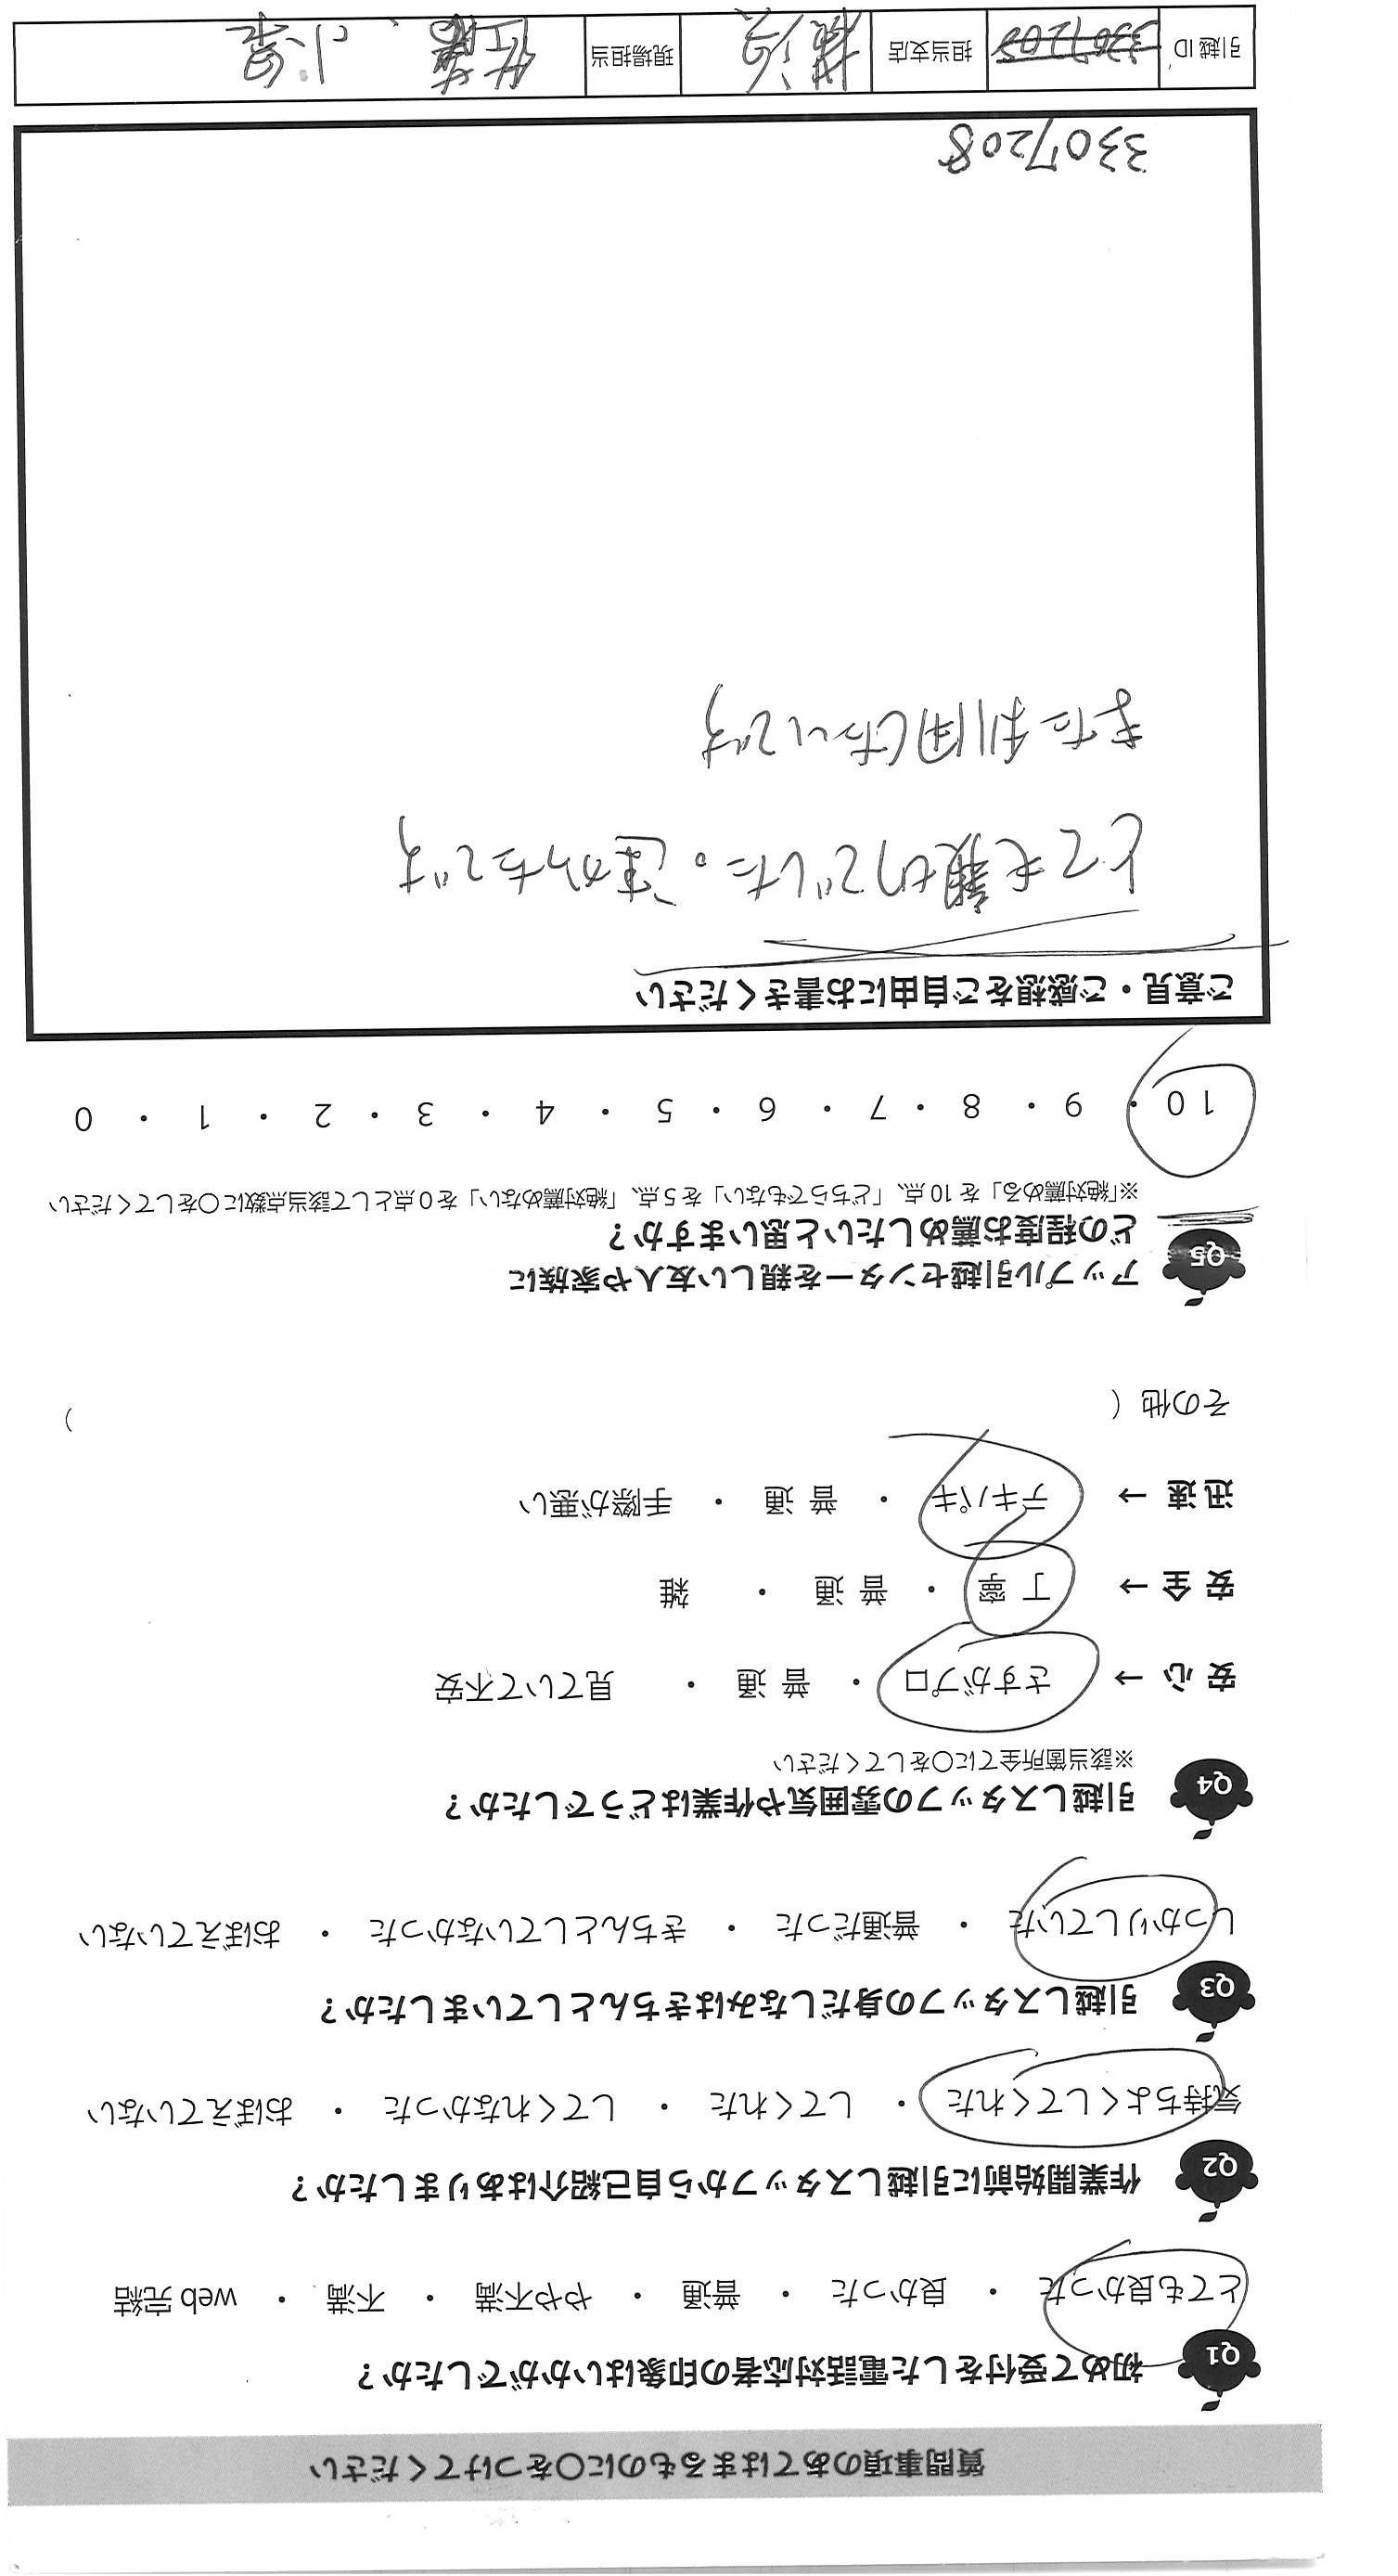 質問事項のあてはまるものに〇をつけてください
Q1 初めて受付をした電話対応者の印象はいかがでしたか？
とても良かった ・ 良かった ・ 普通 ・ やや不満 ・ 不満 ・ web 完結
Q2 作業開始前に引越しスタッフから自己紹介はありましたか？
気持ちよくしてくれた ・ してくれた ・ してくれなかった ・ おぼえていない
Q3 引越しスタッフの身だしなみはきちんとしていましたか？
しっかりしていた ・ 普通だった ・ きちんとしていなかった ・ おぼえていない
Q4 引越しスタッフの雰囲気や作業はどうでしたか？
※該当箇所全てに〇をしてください
安心 → さすがプロ ・ 普通 ・ 見ていて不安
安全 → 丁寧 ・ 普通 ・ 雑
迅速 → テキパキ ・ 普通 ・ 手際が悪い
その他（ ）
Q5 アップル引越センターを親しい友人や家族に
どの程度お薦めしたいと思いますか？
※「絶対薦める」を10点、「どちらでもない」を5点、「絶対薦めない」を0点として該当点数に〇をしてください
10 ・ 9 ・ 8 ・ 7 ・ 6 ・ 5 ・ 4 ・ 3 ・ 2 ・ 1 ・ 0
ご意見・ご感想をご自由にお書きください
とても親切でした。速かったです
また利用したいです
3307208
引越ID 3307208 担当支店 横浜 現場担当 佐藤、小泉